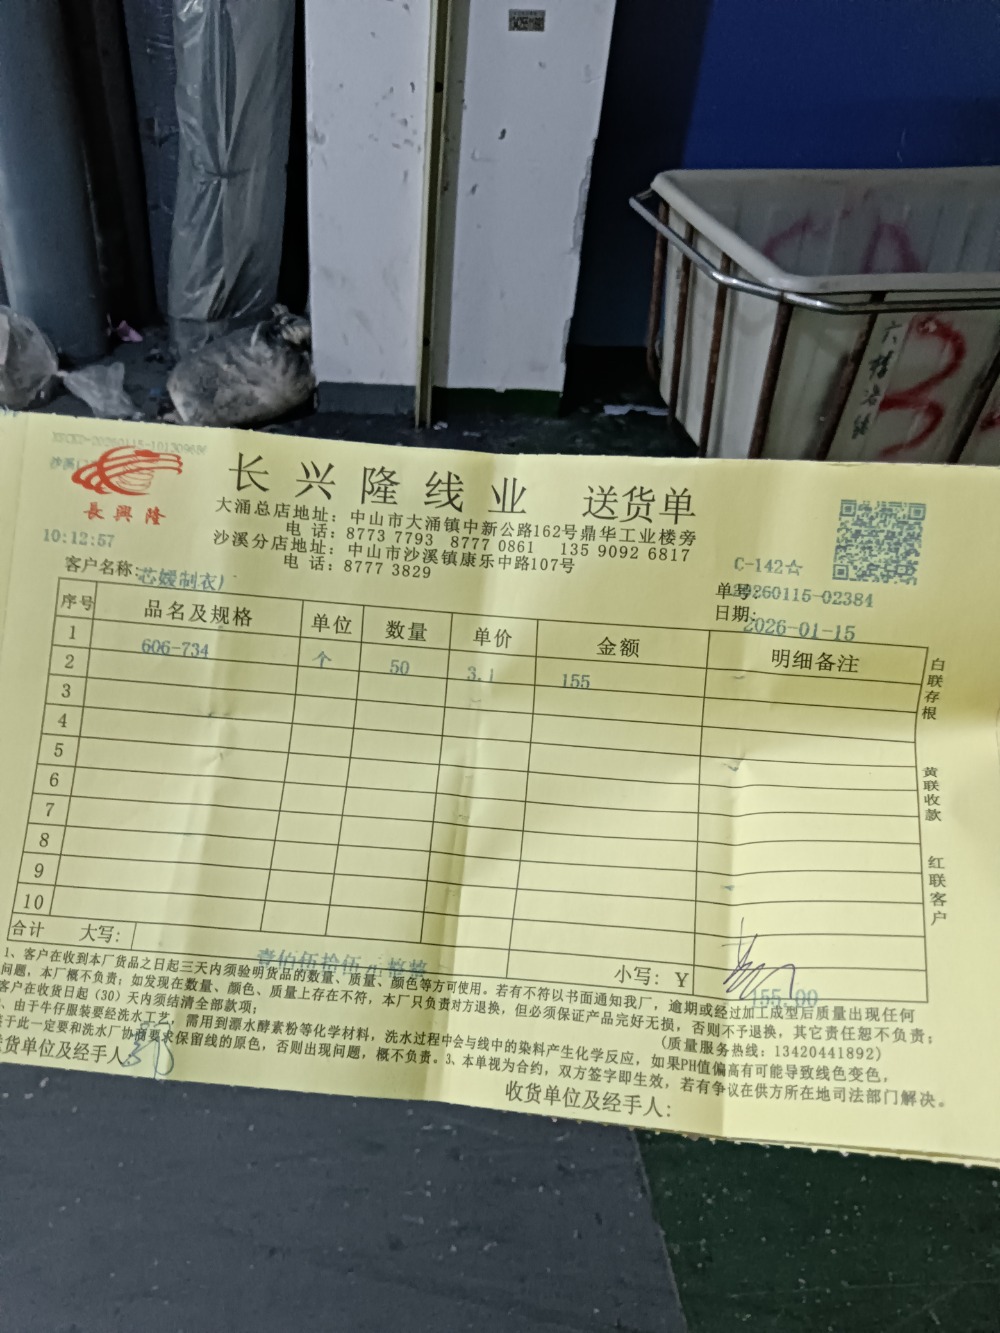 XFCKD-20260115-101309686
長興隆
长兴隆线业 送货单
大涌总店地址：中山市大涌镇中新公路162号鼎华工业楼旁
电 话：8773 7793 8777 0861 135 9092 6817
沙溪分店地址：中山市沙溪镇康乐中路107号
电 话：8777 3829
10:12:57
C-142☆
客户名称：芯媛制衣厂
单号：20260115-02384
日期：2026-01-15
序号 品名及规格 单位 数量 单价 金额 明细备注
1 606-734 个 50 3.1 155
2
3
4
5
6
7
8
9
10
合计 大写： 壹佰伍拾伍元整整 小写：¥ 155.00
白联存根
黄联收款
红联客户
1、客户在收到本厂货品之日起三天内须验明货品的数量、质量、颜色等方可使用。若有不符以书面通知我厂，逾期或经过加工成型后质量出现任何
问题，本厂概不负责；如发现在数量、颜色、质量上存在不符，本厂只负责对方退换，但必须保证产品完好无损，否则不予退换，其它责任恕不负责；
客户在收货日起（30）天内须结清全部款项；
（质量服务热线：13420441892）
由于牛仔服装要经洗水工艺，需用到漂水酵素粉等化学材料，洗水过程中会与线中的染料产生化学反应，如果PH值偏高有可能导致线色变色，
于此一定要和洗水厂协商要求保留线的原色，否则出现问题，概不负责。3、本单视为合约，双方签字即生效，若有争议在供方所在地司法部门解决。
货单位及经手人：
收货单位及经手人：
3